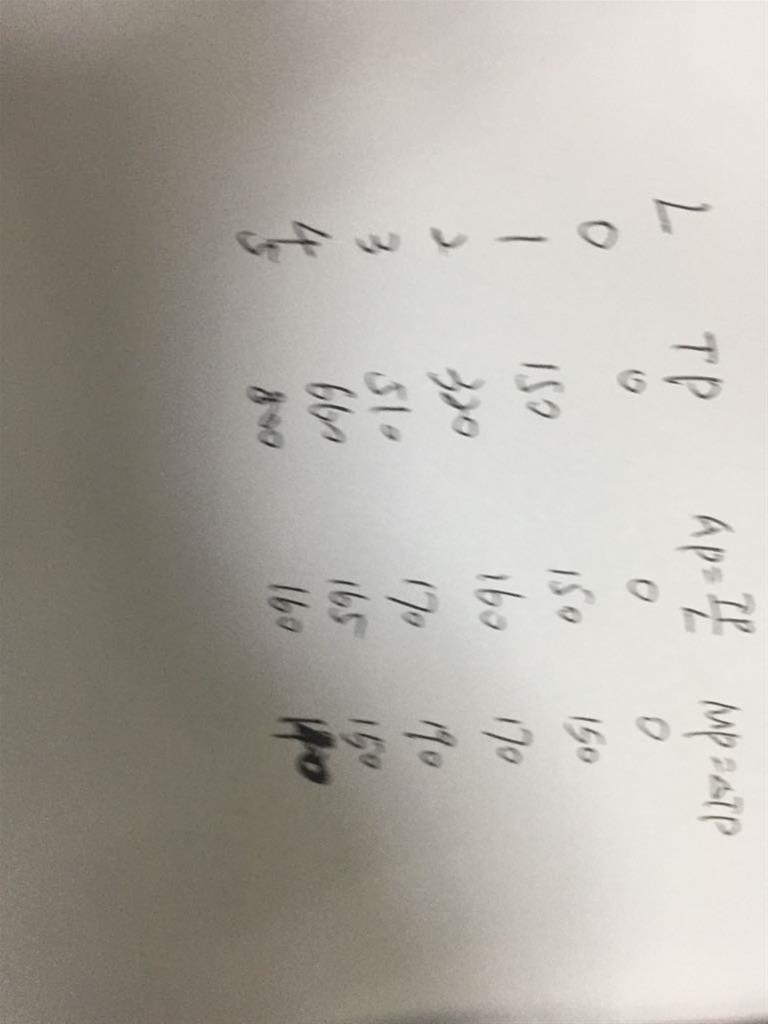 L TP AP=TP/L MP=△TP
0 0 0 0
1 150 150 150
2 320 160 170
3 510 170 190
4 660 165 150
5 800 160 140